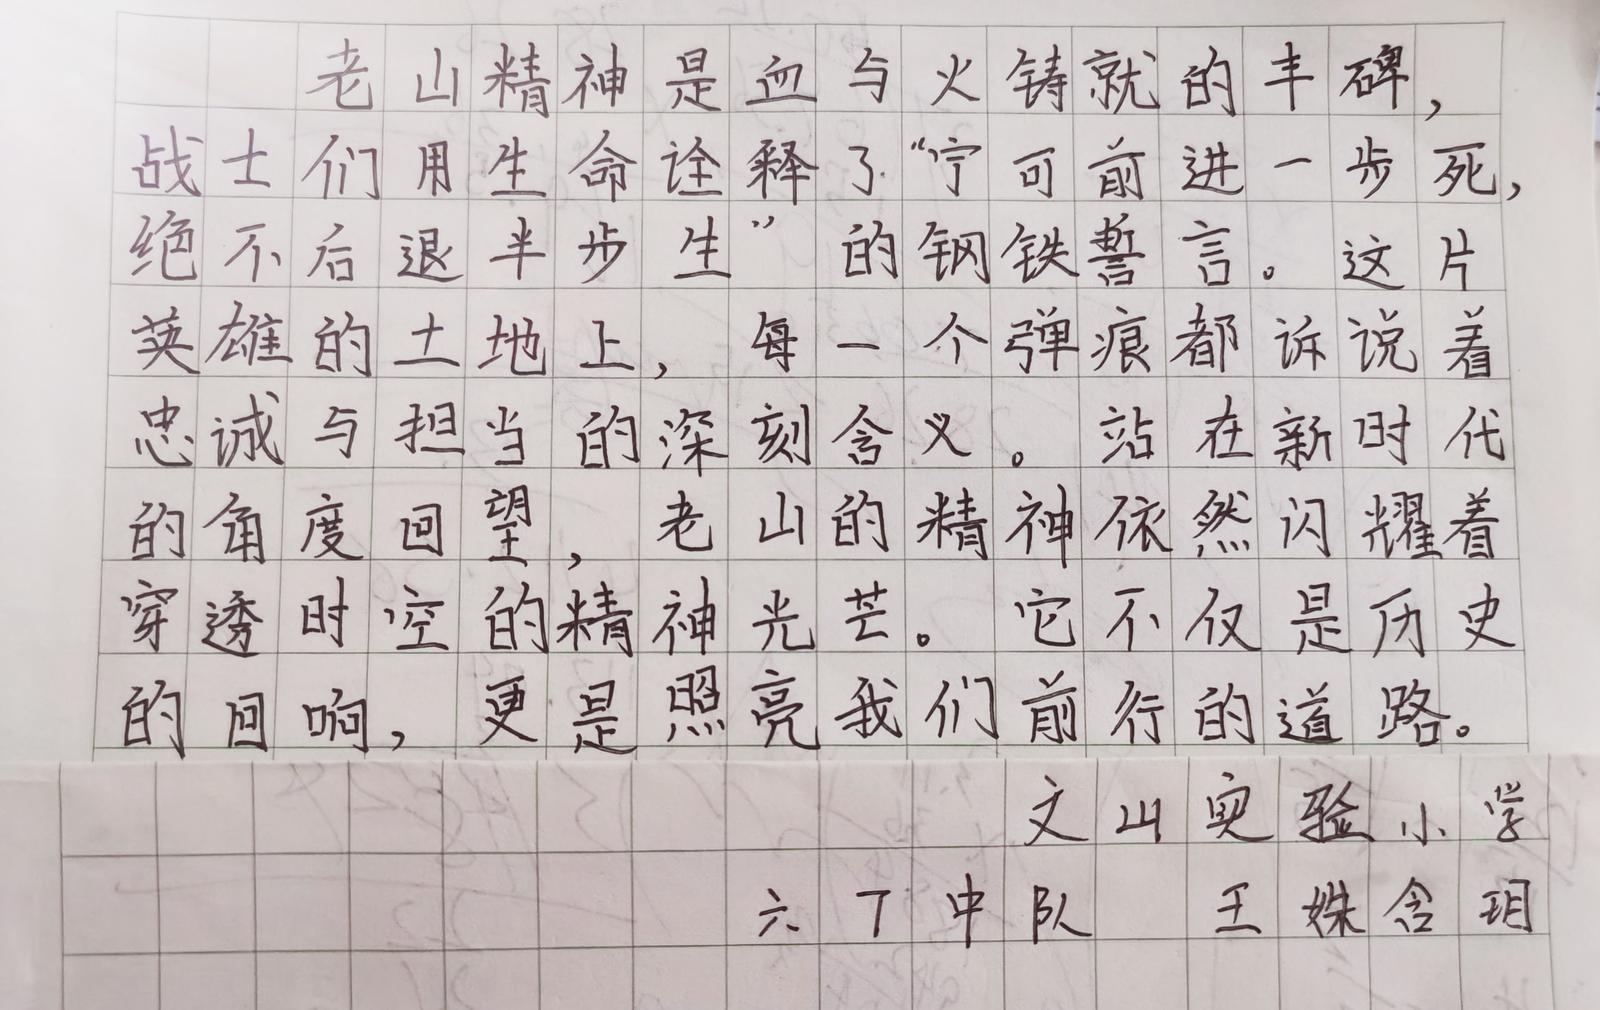 老山精神是血与火铸就的丰碑，
战士们用生命诠释了“宁可前进一步死，
绝不后退半步生”的钢铁誓言。这片
英雄的土地上，每一个弹痕都诉说着
忠诚与担当的深刻含义。站在新时代
的角度回望，老山的精神依然闪耀着
穿透时空的精神光芒。它不仅是历史
的回响，更是照亮我们前行的道路。
文山实验小学
六丁中队 王姝含玥